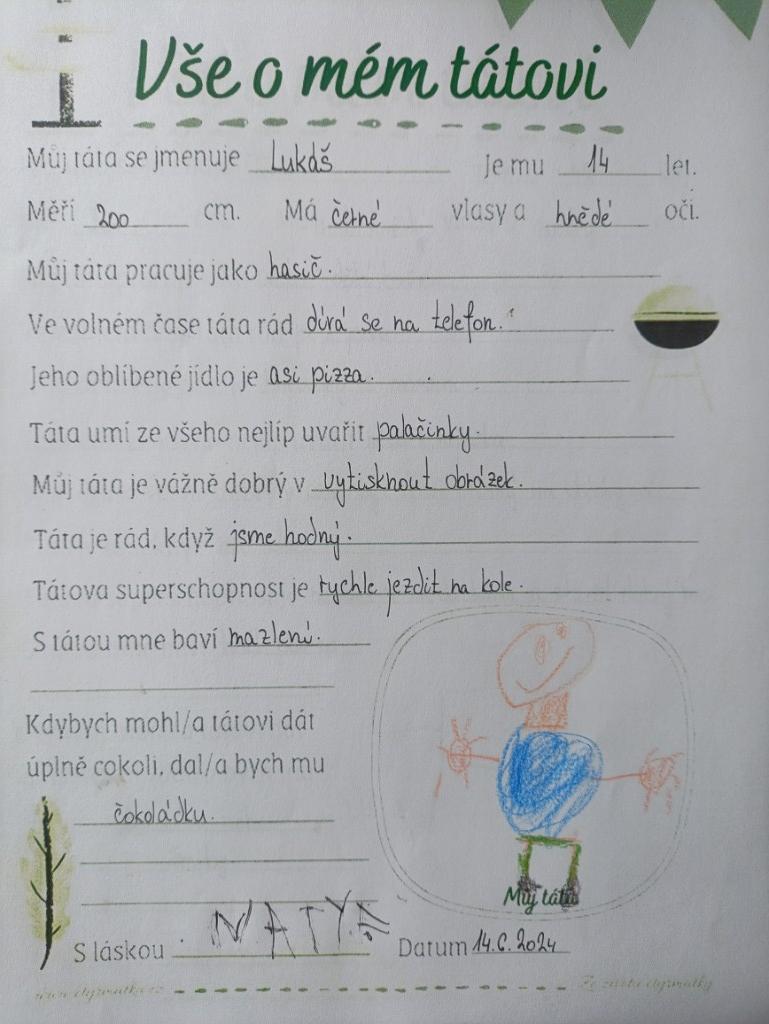 Vše o mém tátovi
Můj táta se jmenuje Lukáš Je mu 14 let.
Měří 200 cm. Má černé vlasy a hnědé oči.
Můj táta pracuje jako hasič.
Ve volném čase táta rád dívá se na telefon.
Jeho oblíbené jídlo je asi pizza.
Táta umí ze všeho nejlíp uvařit palačinky.
Můj táta je vážně dobrý v vytisknout obrázek.
Táta je rád, když jsme hodný.
Tátova superschopnost je rychle jezdit na kole.
S tátou mne baví mazlení.
Kdybych mohl/a tátovi dát
úplně cokoli, dal/a bych mu
čokoládku.
Můj táta
S láskou Datum 14.6.2024